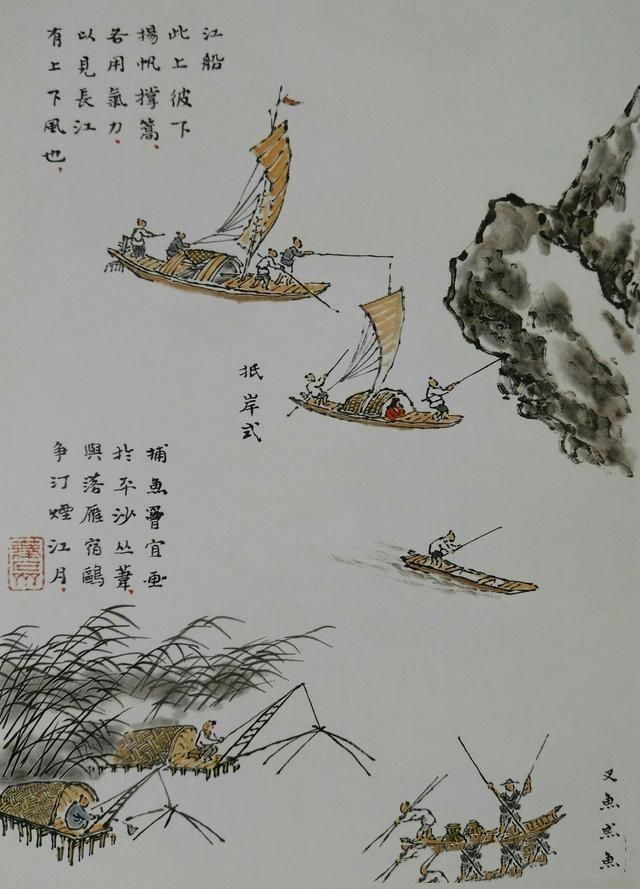 江船
此上彼下
揚帆撐篙、
各用氣力、
以見長江
有上下風也、
抵岸式
捕魚罾宜画
於平沙丛葦、
與落雁宿鷗
争汀煙江月、
叉魚魚